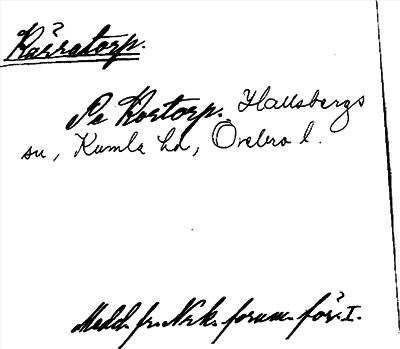 Kårratorp.
Se Kortorp. Hallsbergs
sn, Kumla hd, Örebro l.
Medd. fr. Nrk. fornm. för. I.